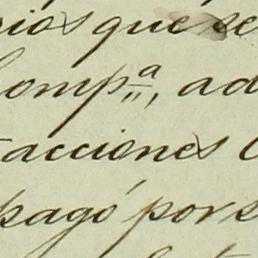 que se
Comp.ª, ad
acciones
pagó por s